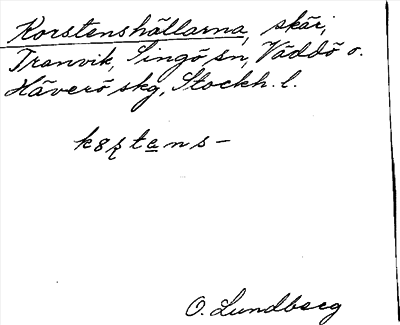 Korstenshällarna, skär,
Tranvik, Singö sn, Väddö o.
Häverö skg, Stockh. l.
O. Lundberg